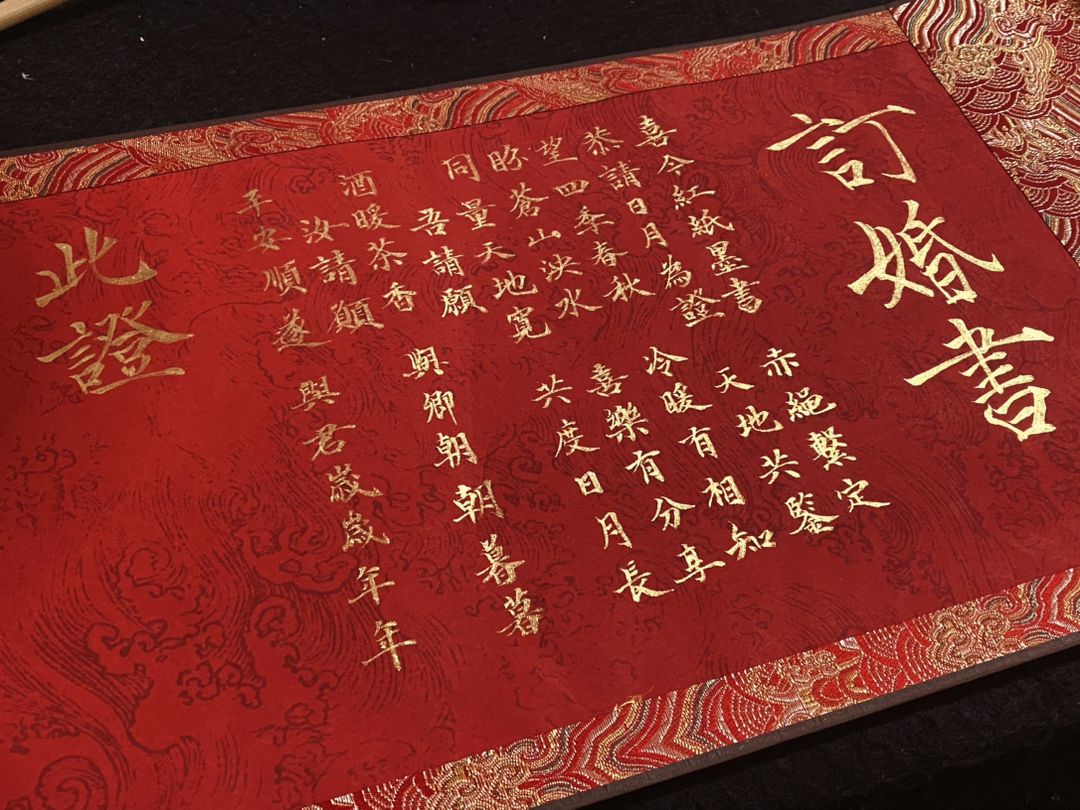 訂婚書
喜今紅紙墨書 赤繩繫定
恭請日月為證 天地共鑒
望四季春秋 冷暖有相知
盼蒼山泱水 喜樂有分享
同量天地寬 共度日月長
吾請願
酒暖茶香 與卿朝朝暮暮
汝請願
平安順遂 與君歲歲年年
此證